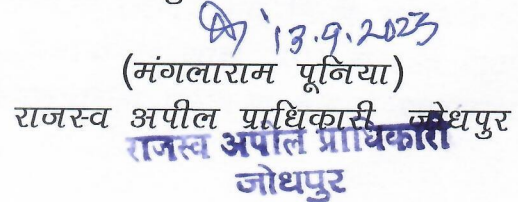 13.9.2023
(मंगलाराम पूनिया)
राजस्व अपील प्राधिकारी जोधपुर
राजस्व अपील प्राधिकारी
जोधपुर